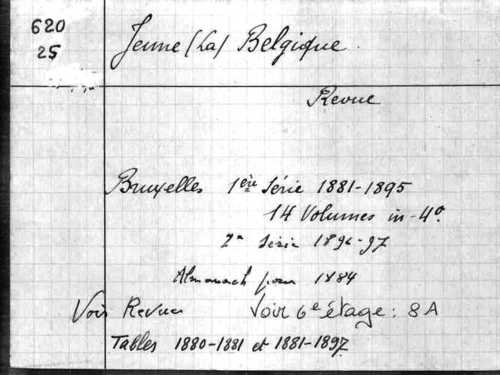 620
25
Jeune (La) Belgique
Revue
Bruxelles 1ère Série 1881-1895
14 Volumes in-4º
2e Série 1896-97
Almanach pour 1884
Voir Revues Voir 6e étage: 8A
Tables 1880-1881 et 1881-1897